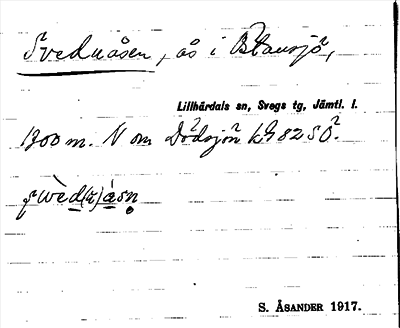 Sveduåsen, ås i Blansjö,
Lillhärdals sn, Svegs tg, Jämtl. l.
1300 m. N om Dödsjön k. 82 SÖ.
swèd(u)åsn̥
S. ÅSANDER 1917.